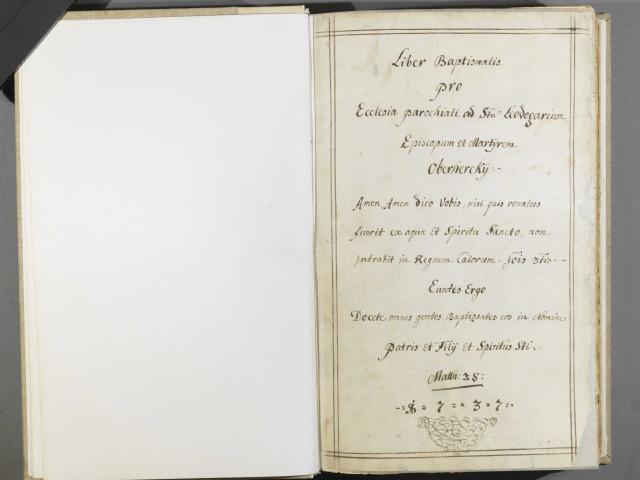 Liber Baptismalis
pro
Ecclesia parochiali ad Stm Leodogarium
Episcopum et Martÿrem
Oberkerckÿ:-
Amen Amen dico Vobis, nisi quis renatus
fuerit ex aqua et Spiritu Sancto, non
intrabit in Regnum Cælorum. Jois 3tio. -
Euntes Ergo
Docete omnes gentes, Baptizantes eos in Nomine
Patris et Filÿ et Spiritus Sti.
Matth: 28:
7 = 3 = 7